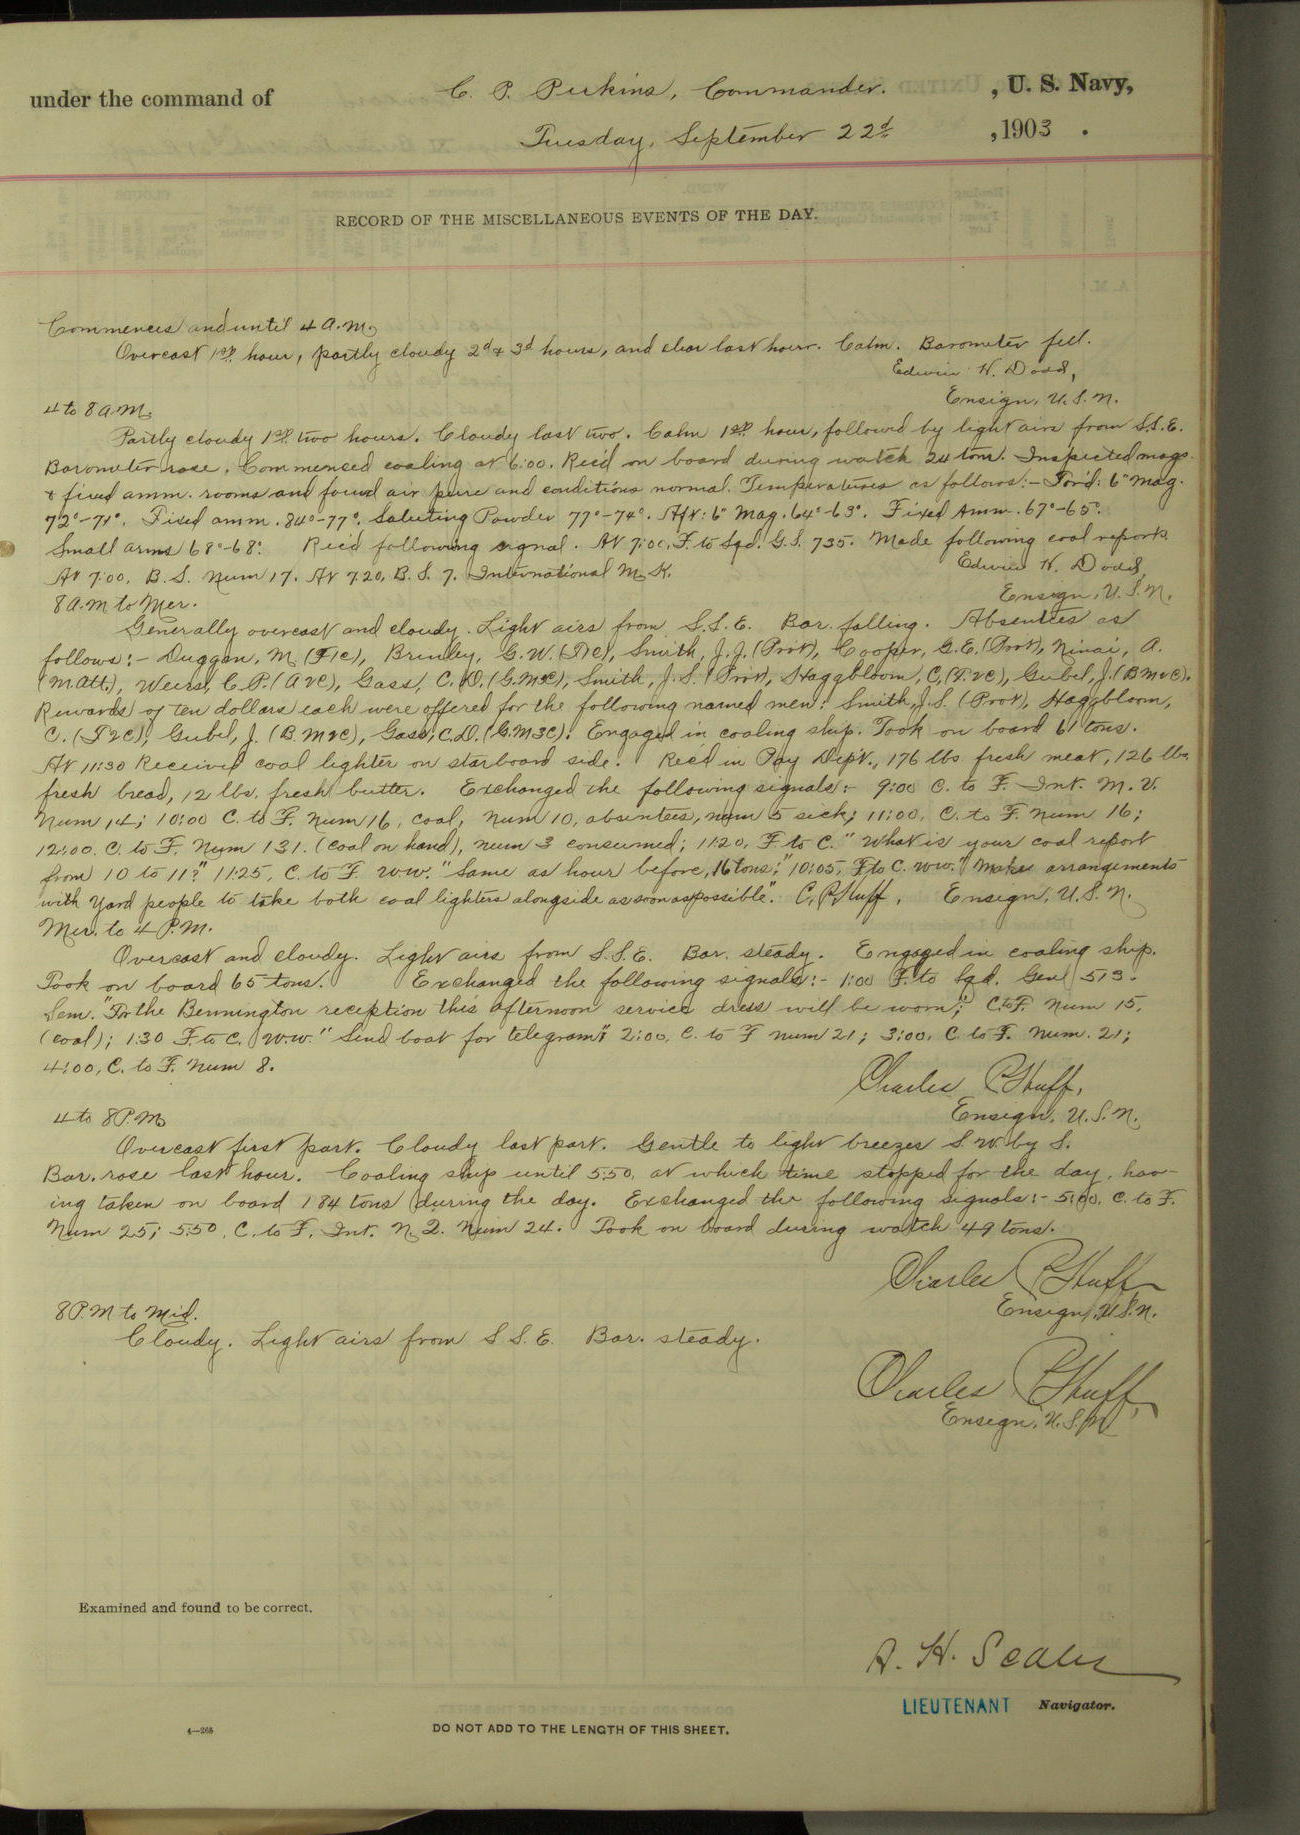 under the command of C. P. Perkins, Commander. , U. S. Navy,
Tuesday, September 22d , 1903 .
RECORD OF THE MISCELLANEOUS EVENTS OF THE DAY.
Commences and until 4 A.M.
Overcast 1st hour, partly cloudy 2d & 3d hours, and clear last hour. Calm. Barometer fell.
Edwin H. Dodd,
Ensign, U.S.N.
4 to 8 A.M.
Partly cloudy 1st two hours. Cloudy last two. Calm 1st hour, followed by light airs from S.S.E.
Barometer rose. Commenced coaling at 6:00. Rec'd on board during watch 24 tons. Inspected mags.
& fixed amm. rooms and found air pure and conditions normal. Temperatures as follows:- For'd: 6" Mag.
72°-71°. Fixed amm. 84°-77°. Saluting Powder 77°-74°. Aft: 6" Mag. 64°-63°. Fixed Amm. 67°-65°.
Small arms 68°-68°. Rec'd following signal. At 7:00, F. to Sqd. G.S. 735. Made following coal reports.
At 7:00, B.S. Num 17. At 7.20, B.S. 7. International M.K.
Edwin H. Dodd,
Ensign, U.S.N.
8 A.M to Mer.
Generally overcast and cloudy. Light airs from S.S.E. Bar. falling. Absentees as
follows:- Duggan, M. (F1c), Brinley, G.W. , Smith, J.J. (Priv), Cooper, G.E. (Priv), Ninai, A.
(Matt.), Weirs, C.P. , Gass, C.D. (G.M3C), Smith, J.S. (Priv), Haggbloom, C. (F.2c), Geibel, J. (BM2c).
Rewards of ten dollars each were offered for the following named men: Smith, J.S. (Priv), Haggbloom,
C. (F2c), Geibel, J. (BM2c), Gass, C.D. (G.M3C). Engaged in coaling ship. Took on board 61 tons.
At 11:30 Received coal lighter on starboard side. Rec'd in Pay Dept., 176 lbs fresh meat, 126 lbs.
fresh bread, 12 lbs. fresh butter. Exchanged the following signals:- 9:00 C. to F. Int. M.V.
Num 14; 10:00 C. to F. Num 16, coal, Num 10, absentees, num 5 sick; 11:00, C. to F. Num 16;
12:00. C. to F. Num 131. (coal on hand), num 3 consumed; 11:20, F to C. "What is your coal report
from 10 to 11?" 11:25, C. to F. W.W. "Same as hour before, 16 tons;" 10:05, F to C. W.W. "Make arrangements
with yard people to take both coal lighters alongside as soon as possible". C. P. Huff, Ensign, U.S.N.
Mer. to 4 P.M.
Overcast and cloudy. Light airs from S.S.E. Bar. steady. Engaged in coaling ship.
Took on board 65 tons. Exchanged the following signals:- 1:00 F. to Sqd. Genl 513.
Sem. "For the Bennington reception this afternoon service dress will be worn;" C. to F. Num 15,
(coal); 1:30 F to C. W.W. "Send boat for telegram"; 2:00, C. to F num 21; 3:00, C. to F. Num. 21;
4:00, C. to F. Num 8.
Charles P. Huff,
Ensign, U.S.N.
4 to 8 P.M.
Overcast first part. Cloudy last part. Gentle to light breezes S.W. by S.
Bar. rose last hour. Coaling ship until 5:50, at which time stopped for the day, hav-
ing taken on board 184 tons during the day. Exchanged the following signals:- 5:00, C. to F.
Num 25; 5:50, C. to F. Int. N.Q. Num 24. Took on board during watch 49 tons.
Charles P. Huff
Ensign, U.S.N.
8 P.M to Mid.
Cloudy. Light airs from S.S.E. Bar. steady.
Charles P. Huff,
Ensign, U.S.N.
Examined and found to be correct.
A. H. Scales
LIEUTENANT Navigator.
4—265
DO NOT ADD TO THE LENGTH OF THIS SHEET.